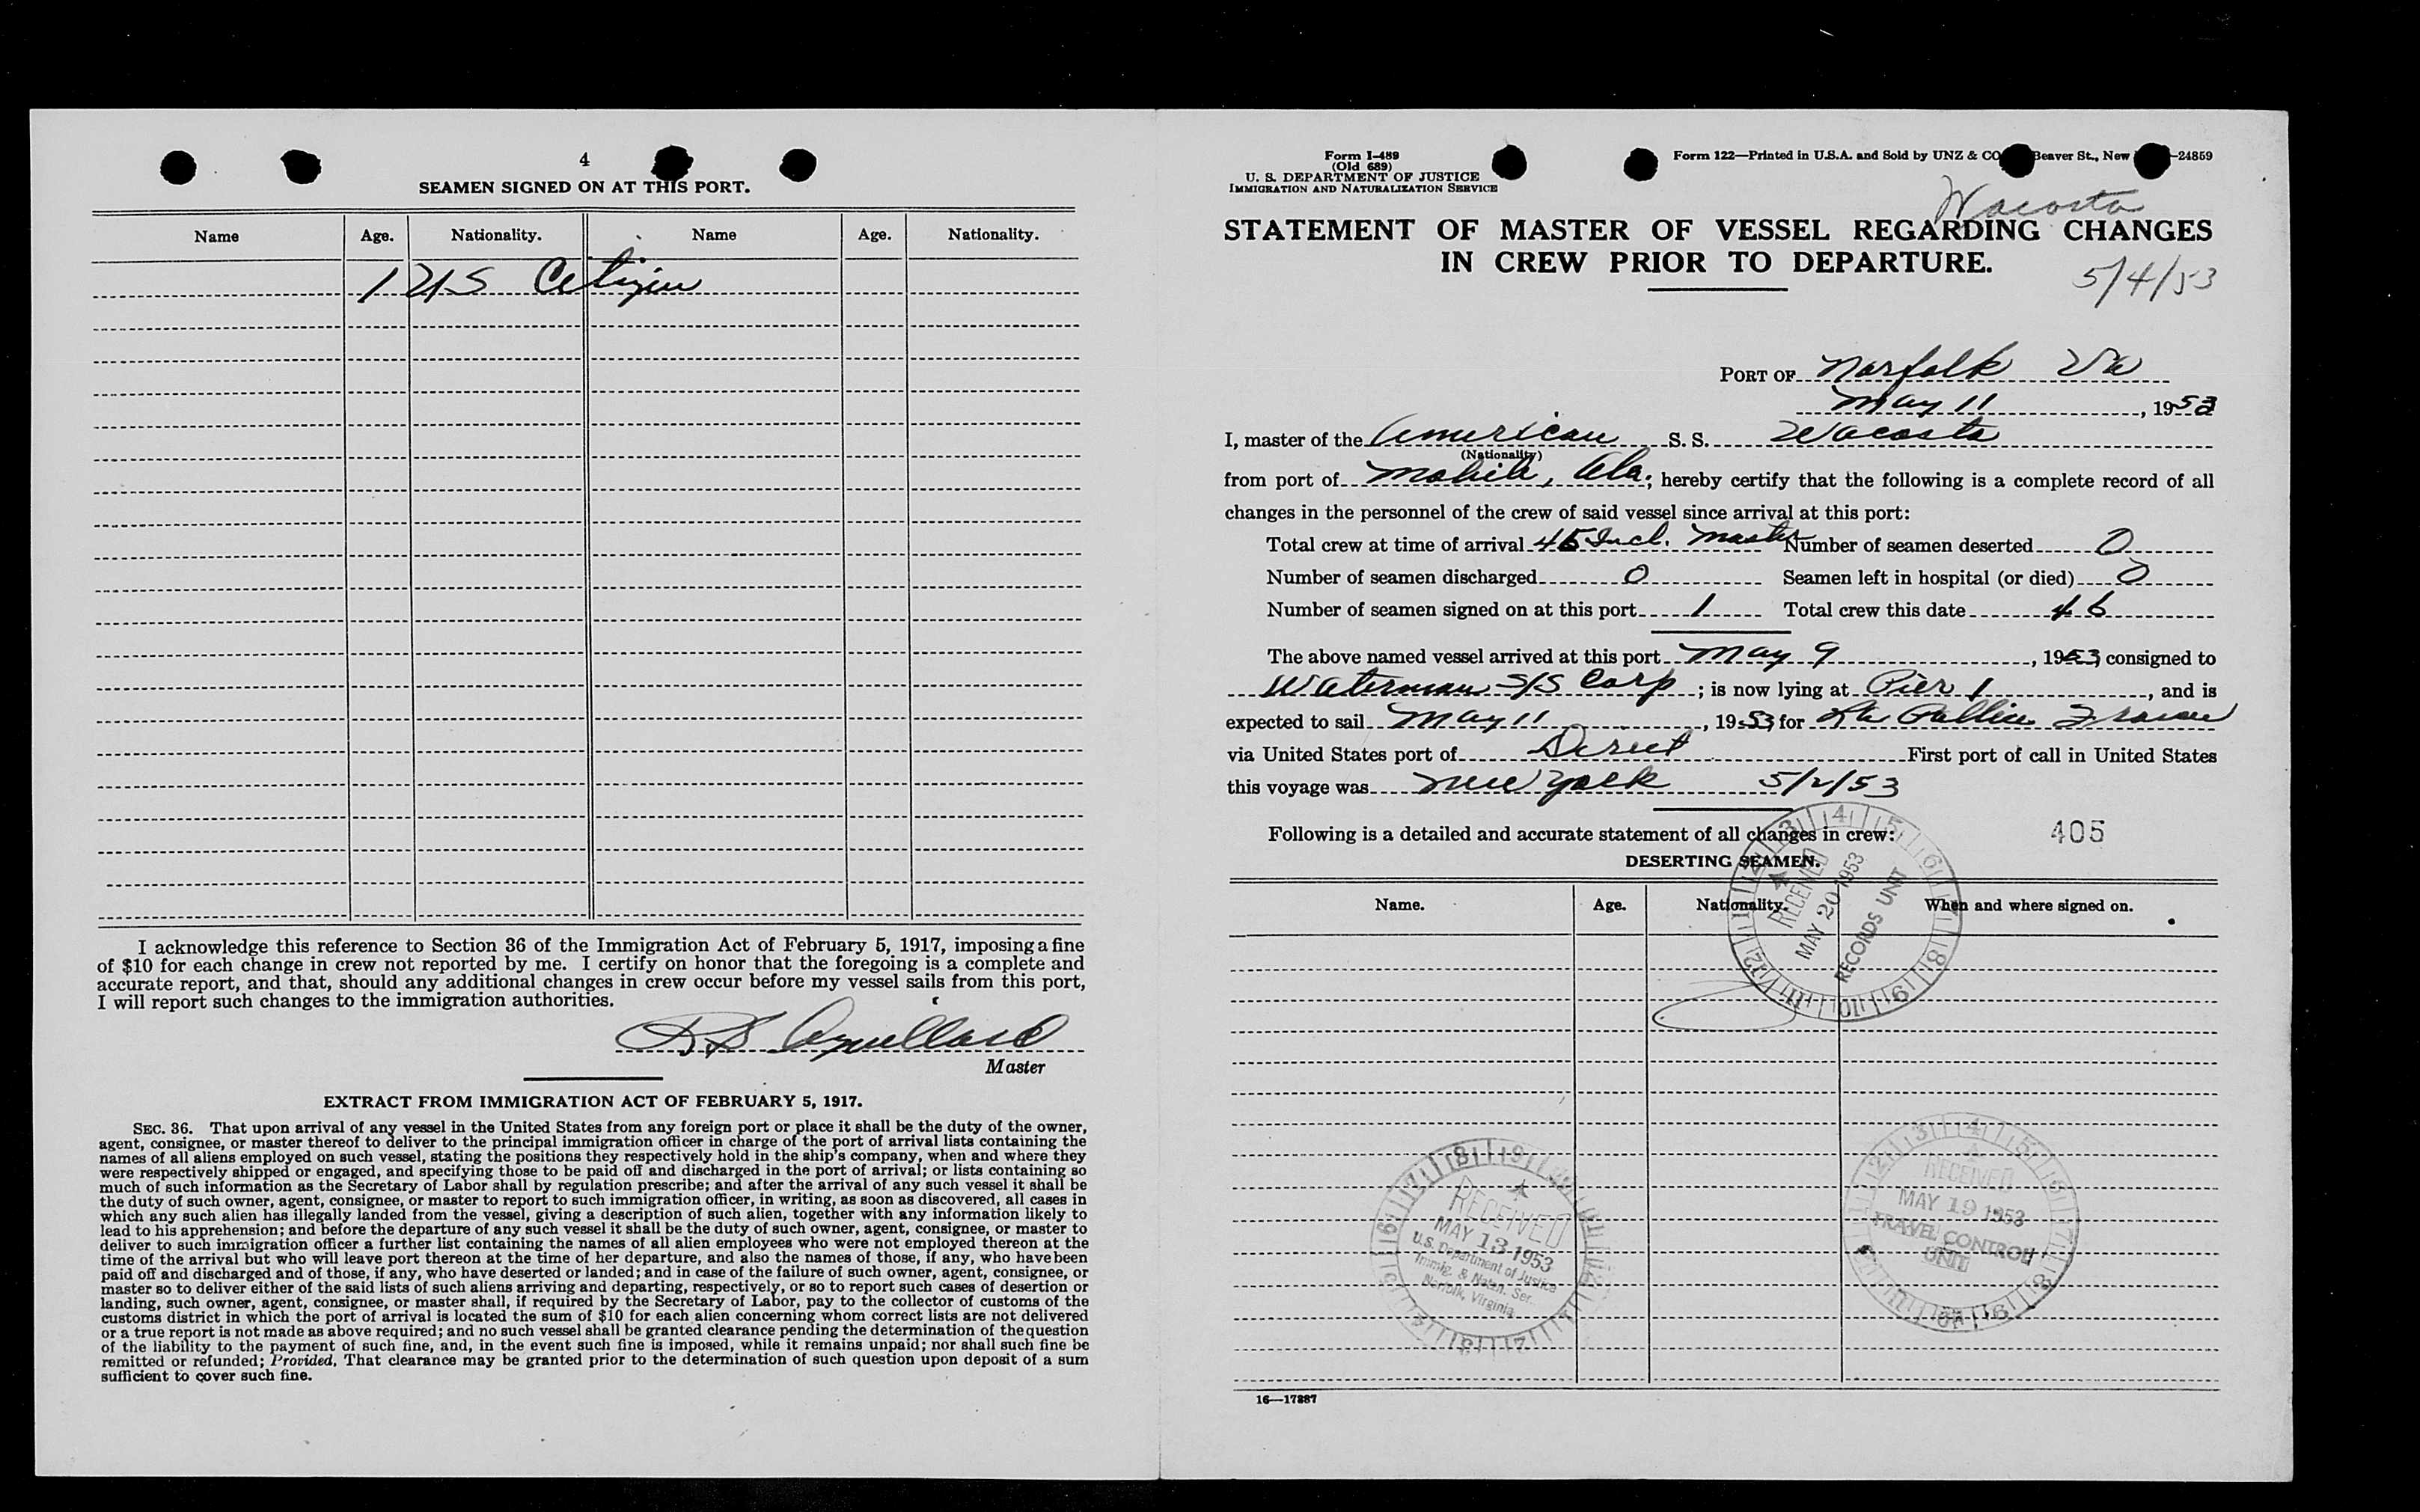 4
SEAMEN SIGNED ON AT THIS PORT.
Name Age. Nationality. Name Age. Nationality.
1 US Citizen
I acknowledge this reference to Section 36 of the Immigration Act of February 5, 1917, imposing a fine
of $10 for each change in crew not reported by me. I certify on honor that the foregoing is a complete and
accurate report, and that, should any additional changes in crew occur before my vessel sails from this port,
I will report such changes to the immigration authorities.
Master
EXTRACT FROM IMMIGRATION ACT OF FEBRUARY 5, 1917.
SEC. 36. That upon arrival of any vessel in the United States from any foreign port or place it shall be the duty of the owner,
agent, consignee, or master thereof to deliver to the principal immigration officer in charge of the port of arrival lists containing the
names of all aliens employed on such vessel, stating the positions they respectively hold in the ship's company, when and where they
were respectively shipped or engaged, and specifying those to be paid off and discharged in the port of arrival; or lists containing so
much of such information as the Secretary of Labor shall by regulation prescribe; and after the arrival of any such vessel it shall be
the duty of such owner, agent, consignee, or master to report to such immigration officer, in writing, as soon as discovered, all cases in
which any such alien has illegally landed from the vessel, giving a description of such alien, together with any information likely to
lead to his apprehension; and before the departure of any such vessel it shall be the duty of such owner, agent, consignee, or master to
deliver to such immigration officer a further list containing the names of all alien employees who were not employed thereon at the
time of the arrival but who will leave port thereon at the time of her departure, and also the names of those, if any, who have been
paid off and discharged and of those, if any, who have deserted or landed; and in case of the failure of such owner, agent, consignee, or
master so to deliver either of the said lists of such aliens arriving and departing, respectively, or so to report such cases of desertion or
landing, such owner, agent, consignee, or master shall, if required by the Secretary of Labor, pay to the collector of customs of the
customs district in which the port of arrival is located the sum of $10 for each alien concerning whom correct lists are not delivered
or a true report is not made as above required; and no such vessel shall be granted clearance pending the determination of the question
of the liability to the payment of such fine, and, in the event such fine is imposed, while it remains unpaid; nor shall such fine be
remitted or refunded; Provided, That clearance may be granted prior to the determination of such question upon deposit of a sum
sufficient to cover such fine.
Form I-489
(Old 689)
U. S. DEPARTMENT OF JUSTICE
IMMIGRATION AND NATURALIZATION SERVICE
Form 122—Printed in U.S.A. and Sold by UNZ & CO Beaver St., New -24859
Wacosta
STATEMENT OF MASTER OF VESSEL REGARDING CHANGES
IN CREW PRIOR TO DEPARTURE.
5/4/53
PORT OF Norfolk Va
May 11, 1953
I, master of the American S. S. Wacosta
(Nationality)
from port of Mobile, Ala; hereby certify that the following is a complete record of all
changes in the personnel of the crew of said vessel since arrival at this port:
Total crew at time of arrival 45 Incl. Master Number of seamen deserted 0
Number of seamen discharged 0 Seamen left in hospital (or died) 0
Number of seamen signed on at this port 1 Total crew this date 46
The above named vessel arrived at this port May 9, 1953, consigned to
Waterman S/S Corp; is now lying at Pier 1, and is
expected to sail May 11, 1953, for La Pallice France
via United States port of Direct First port of call in United States
this voyage was New York 5/2/53
Following is a detailed and accurate statement of all changes in crew:
405
DESERTING SEAMEN.
Name. Age. Nationality. When and where signed on.
RECEIVED
MAY 20 1953
RECORDS UNIT
RECEIVED
MAY 13 1953
U.S. Department of Justice
Immig. & Natzn. Ser.
Norfolk, Virginia
RECEIVED
MAY 19 1953
TRAVEL CONTROL
UNIT
16—17887